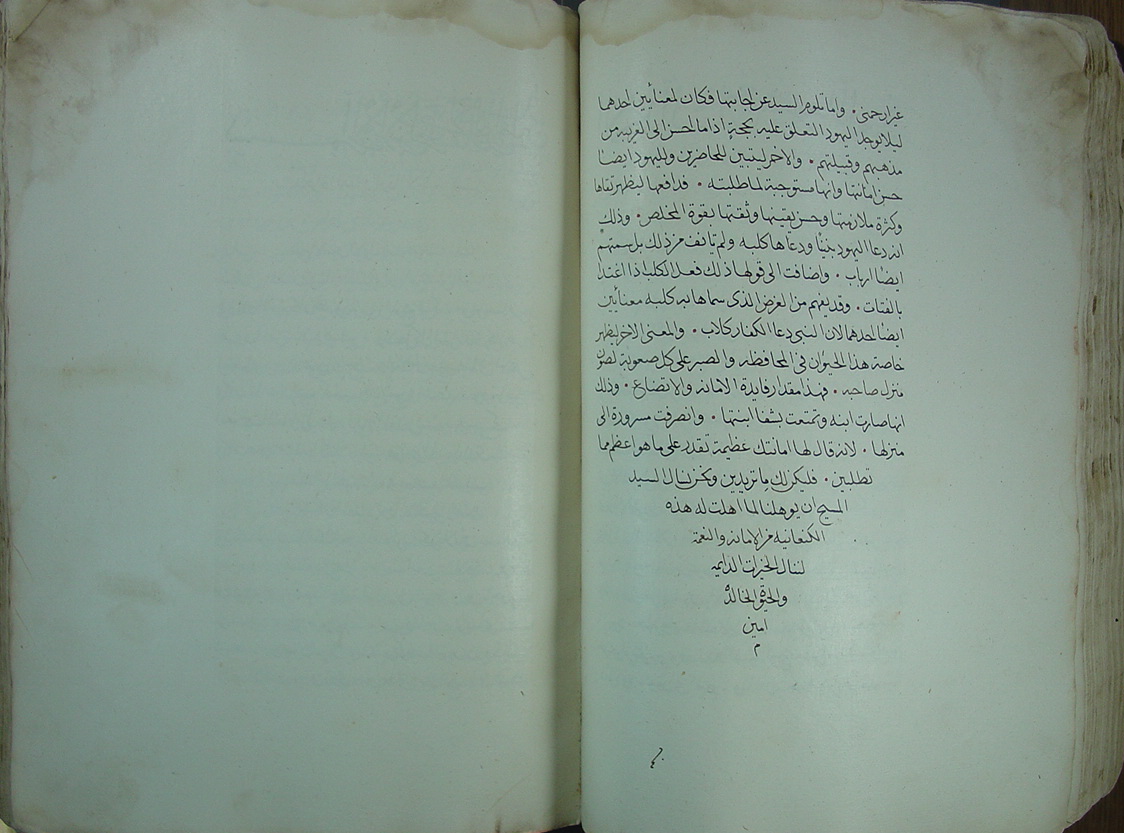 غير ارحمنى · واما تلوم السيد عن اجابتها فكان لمعنائين احدهما
ليلا يوجد اليهود التعلق عليه بحجة اذا ما احسن الى الغريبه من
مذهبهم وقبيلتهم · والاخر ليتبين للحاضرين ولليهود ايضا
حسن امانتها وانها مستوجبة لما طلبته · فدافعها ليظهر تقاها
وكثرة ملازمتها وحسن يقينها وثقتها بقوة المخلص · وذلك
انه دعا اليهود بنينا ودعاها كلبه ولم تانف من ذلك بل سمتهم
ايضا ارباب · واضافت الى قولها ذلك فعل الكلب اذا اغتدا
بالفتات · وقد يفهم من الغرض الذى سماها به كلبه معنائين
ايضا احدهما لان النبى دعا الكفار كلاب · والمعنى الاخر ليظهر
خاصة هذا الحيوان فى المحافظه والصبر على كل صعوبة لصون
منزل صاحبه · فهذا مقدار فايدة الامانه والاتضاع · وذلك
انها صارت ابنه وتمتعت بشفا ابنتها · وانصرفت مسرورة الى
منزلها · لانه قال لها امانتك عظيمة تقدر على ما هو اعظم مما
تطلبين · فليكن لك ما تريدين ونحن نسال السيد
المسيح ان يوهلنا لما اهلت له هذه
الكنعانيه من الامانه والنعمة
لننال الخيرات الدايمه
والحيوة الخالده
امين
م